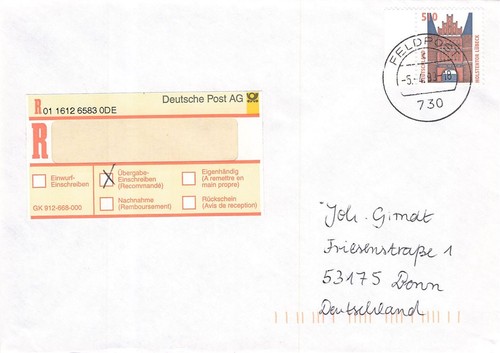 500
HOLSTENTOR LÜBECK
FELDPOST
730
Deutsche Post AG
R 01 1612 6583 0DE
R
Einwurf-
Einschreiben
Übergabe-
Einschreiben
(Recommandé)
Eigenhändig
(A remettre en
main propre)
Nachnahme
(Remboursement)
Rückschein
(Avis de reception)
GK 912-668-000
Joh. Girndt
Friesenstraße 1
53175 Bonn
Deutschland